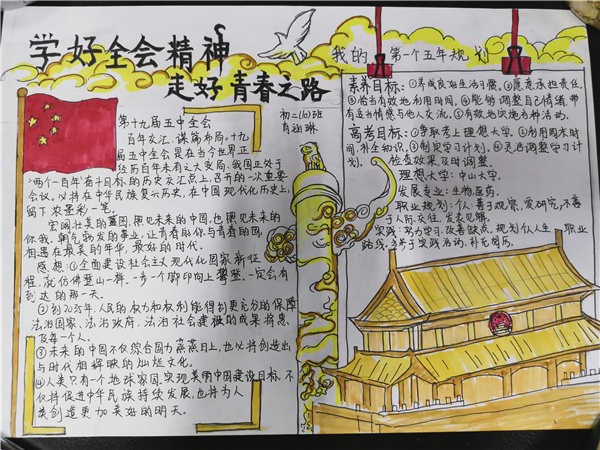 学好全会精神
走好青春之路
初二(6)班
第十九届五中全会
百年交汇、谋篇布局。十九
届五中全会是在当今世界正
经历百年未有之大变局,我国正处于
"两个一百年"奋斗目标的历史交汇点上,召开的一次重要
会议。必将在中华民族复兴历史,在中国现代化历史上,
留下浓墨彩一笔。
宏阔壮美的蓝图,照见未来的中国,也照见未来的
你我。朝气勃发的事业,让青春的你与青春的国,
相遇在最美的年华,最好的时代。
感想:①全面建设社会主义现代化国家新征
程,就仿佛登山一样,一步一个脚印向上攀登,一定会有
到达的那一天。
②到2035年,人民的权力和权利能得到更充分的保障
法治国家、法治政府、法治社会建设的成果将惠
及每一个人。
③未来的中国不仅综合国力蒸蒸日上,也必将创造出
与时代相辉映的灿烂文化。
④人类只有一个地球家园,实现美丽中国建设目标,不
仅将促进中华民族持续发展,也将为人
类创造更加美好的明天。
我的第一个五年规划
素养目标:①养成良好生活习惯。②愿意承担责任。
③恰当有效地利用时间。④能够调整自己情绪,带
有适当情感与他人交流。⑤有效地实地各种活动。
高考目标:①争取考上理想大学。②利用周末时
间,补全知识。③制定学习计划。④灵活调整学习计
划,检查效果,及时调整。
理想大学:中山大学。
发展专业:生物医药。
职业规划:个人:善于观察,爱研究,不善
于人际交往,发表见解。
实践:努力学习,改善缺点,规划个人生职业
路线,多参于实践活动,补充阅历。